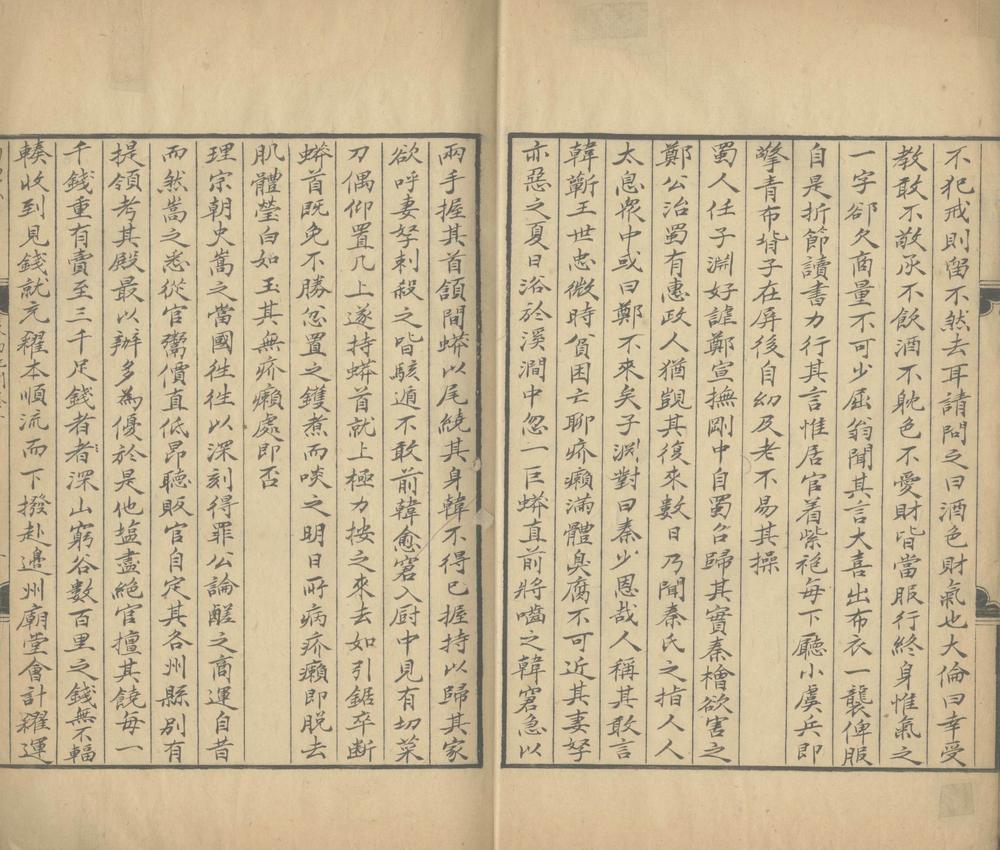 不犯戒則留不然去耳請問之曰酒色財氣也大倫曰幸受
教敢不敬承不飲酒不躭色不愛財皆當服行終身惟氣之
一字卻久商量不可少屈翁聞其言大喜出布衣一襲俾服
自是折節讀書力行其言惟居官着紫袍每下廳小虞兵即
擎青布背子在屏後自幼及老不易其操
蜀人任子淵好謔鄭宣撫剛中自蜀召歸其實秦檜欲害之
鄭公治蜀有惠政人猶覬其復來數日乃聞秦氏之指人人
太息衆中或曰鄭不來矣子淵對曰秦少恩哉人稱其敢言
韓蘄王世忠微時貧困亡聊疥癩滿體臭腐不可近其妻孥
亦惡之夏日浴於溪澗中忽一巨蟒直前將嚙之韓窘急以
兩手握其首頷間蟒以尾繞其身韓不得已握持以歸其家
欲呼妻孥刺殺之皆駭遁不敢前韓愈窘入厨中見有切菜
刀偶仰置几上遂持蟒首就上極力按之來去如引鋸卒斷
蟒首既免不勝忿置之鑊煮而啖之明日所病疥癩即脱去
肌體瑩白如玉其無疥癩處即否
理宗朝史嵩之當國徃徃以深刻得罪公論醝之商運自昔
而然嵩之悉從官鬻價直低昂聽販官自定其各州縣别有
提領考其殿最以辦多為優於是他塩盡絶官擅其饒每一
千錢重有賣至三千足錢者者深山窮谷數百里之錢無不輻
輳收到見錢就充糴本順流而下撥赴邊州廟堂會計糴運